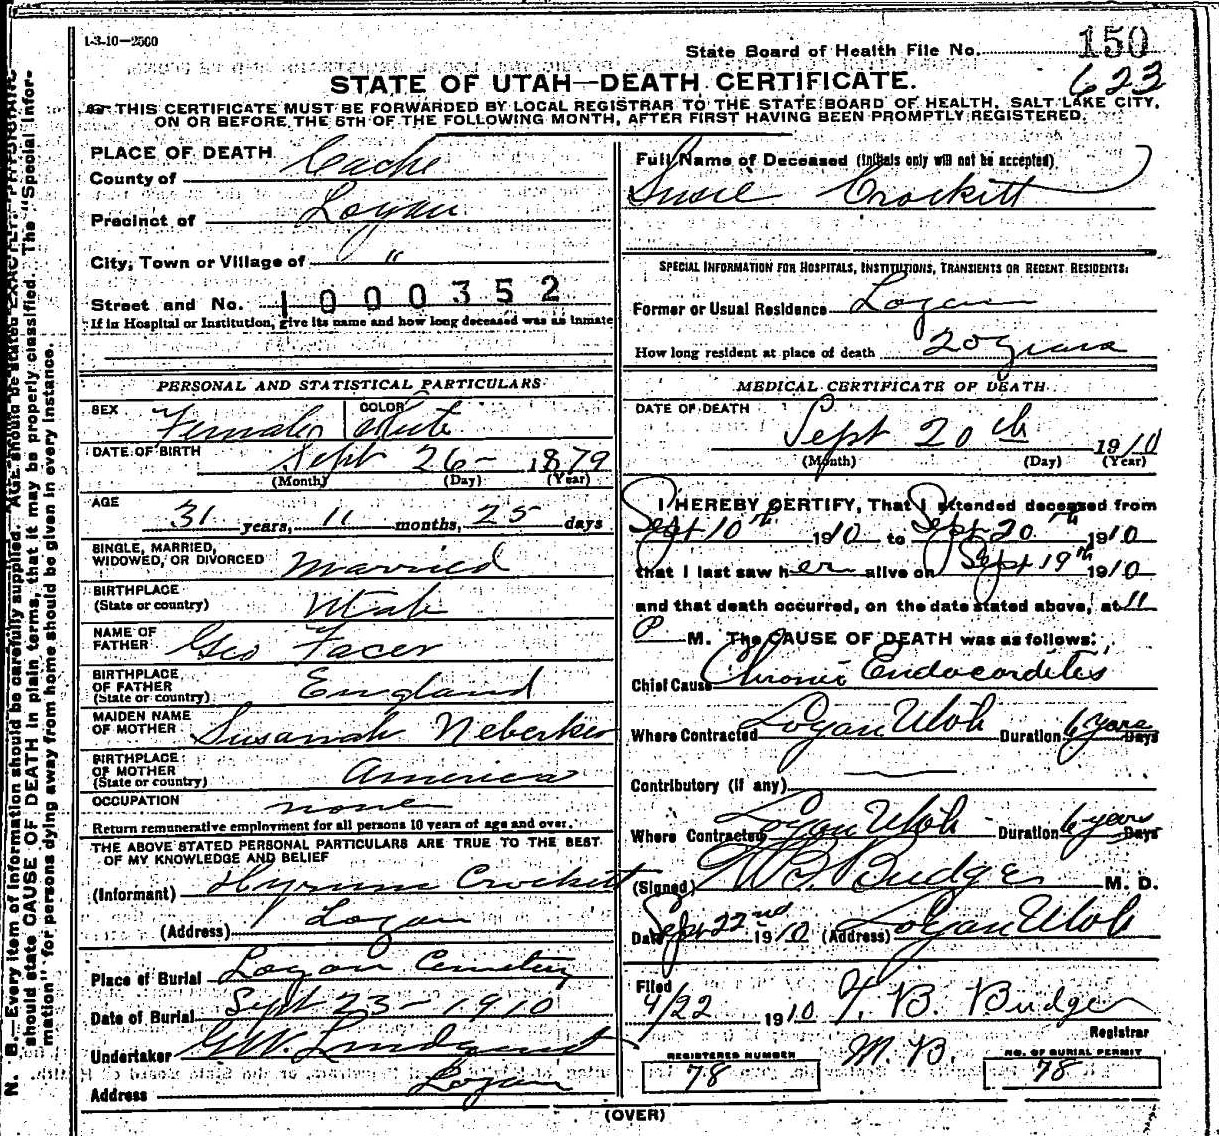 1-3-10—2500
State Board of Health File No. 150
623
STATE OF UTAH—DEATH CERTIFICATE.
THIS CERTIFICATE MUST BE FORWARDED BY LOCAL REGISTRAR TO THE STATE BOARD OF HEALTH, SALT LAKE CITY,
ON OR BEFORE THE 5TH OF THE FOLLOWING MONTH, AFTER FIRST HAVING BEEN PROMPTLY REGISTERED.
PLACE OF DEATH
County of Cache
Precinct of Logan
City, Town or Village of "
Street and No. 1000352
If in Hospital or Institution, give its name and how long deceased was as inmate
PERSONAL AND STATISTICAL PARTICULARS
SEX Female COLOR White
DATE OF BIRTH Sept 26- 1879
(Month) (Day) (Year)
AGE 31 years, 11 months, 25 days
SINGLE, MARRIED,
WIDOWED, OR DIVORCED Married
BIRTHPLACE
(State or country) Utah
NAME OF
FATHER Geo Facer
BIRTHPLACE
OF FATHER
(State or country) England
MAIDEN NAME
OF MOTHER Susanah Neberker
BIRTHPLACE
OF MOTHER
(State or country) America
OCCUPATION none
Return remunerative employment for all persons 10 years of age and over.
THE ABOVE STATED PERSONAL PARTICULARS ARE TRUE TO THE BEST
OF MY KNOWLEDGE AND BELIEF
(Informant) Hyrum Crockett
(Address) Logan
Place of Burial Logan Cemetery
Date of Burial Sept 23-1910
Undertaker G.W. Lindquist
Address Logan
Full Name of Deceased (Initials only will not be accepted)
Susie Crockitt
SPECIAL INFORMATION FOR HOSPITALS, INSTITUTIONS, TRANSIENTS OR RECENT RESIDENTS:
Former or Usual Residence Logan
How long resident at place of death 20 years
MEDICAL CERTIFICATE OF DEATH
DATE OF DEATH
Sept 20th 1910
(Month) (Day) (Year)
I HEREBY CERTIFY, That I attended deceased from
Sept 10th 1910 to Sept 20th 1910
that I last saw her alive on Sept 19th 1910
and that death occurred, on the date stated above, at 11
P M. The CAUSE OF DEATH was as follows:
Chief Cause Chronic Endocarditis
Where Contracted Logan Utah Duration 6 years Days
Contributory (if any)
Where Contracted Logan Utah Duration 6 years Days
(Signed) Budge M. D.
Date Sept 22nd 1910 (Address) Logan Utah
Filed
9/22 1910 T. B. Budge
Registrar
M.D.
REGISTERED NUMBER
78
NO. OF BURIAL PERMIT
78
(OVER)
N. B.—Every item of information should be carefully supplied. AGE should be stated EXACTLY. PHYSICIANS
should state CAUSE OF DEATH in plain terms, that it may be properly classified. The "Special Infor-
mation" for persons dying away from home should be given in every instance.